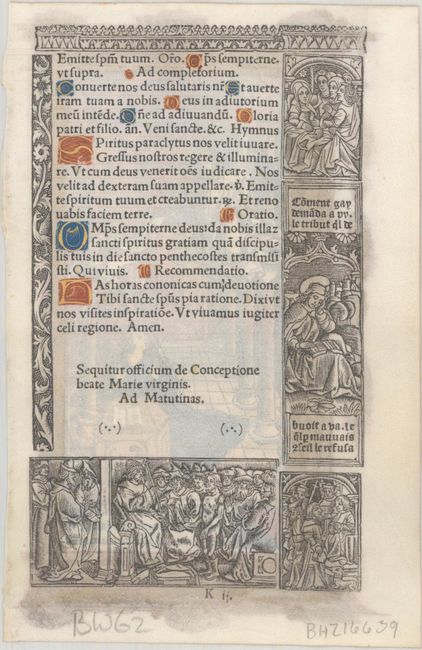 Emitte spm̄ tuum. Oro. Oīps sempiterne.
vt supra. Ad completorium.
Conuerte nos deus salutaris nr̄. Et auerte
iram tuam a nobis. Deus in adiutorium
meū intēde. Dn̄e ad adiuuandū. Gloria
patri et filio. an̄. Veni sancte. &c. Hymnus
SPiritus paraclytus nos velit iuuare.
Gressus nostros regere & illumina-
re. Vt cum deus venerit oēs iudicare. Nos
velit ad dexteram suam appellare. ℣. Emit-
te spiritum tuum et creabuntur. ℟. Et reno
uabis faciem terre. Oratio.
OMp̄s sempiterne deus: da nobis illaz
sancti spiritus gratiam quā discipu-
lis tuis in die sancto penthecostes transmisi
sti. Qui viuis. Recommendatio.
HAs horas cononicas cum deuotione
Tibi sancte spūs pia ratione. Dixi vt
nos visites inspiratiōe. Vt viuamus iugiter
celi regione. Amen.
Sequitur officium de Conceptione
beate Marie virginis.
Ad Matutinas.
(∴) (∴)
Cōment gay
demāda a py.
le tribut ql de
buoit a va. le
qͥl y mauuais
⁊ felle refusa
K ij.
BW62
BHZ16639